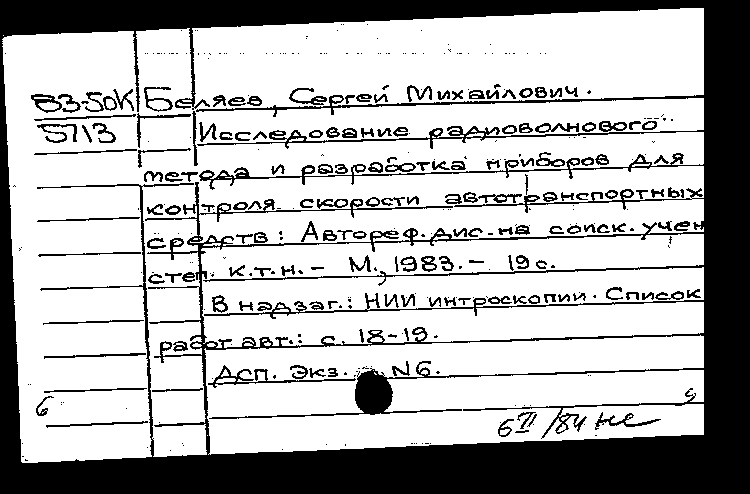 83-50К Беляев, Сергей Михайлович.
5713 Исследование радиоволнового
метода и разработка приборов для
контроля скорости автотранспортных
средств: Автореф. дис. на соиск. учен
степ. к.т.н. - М., 1983. - 19 с.
В надзаг.: НИИ интроскопии. Список
работ авт.: с. 18-19.
Асп. Экз. N6.
6
6 II /84